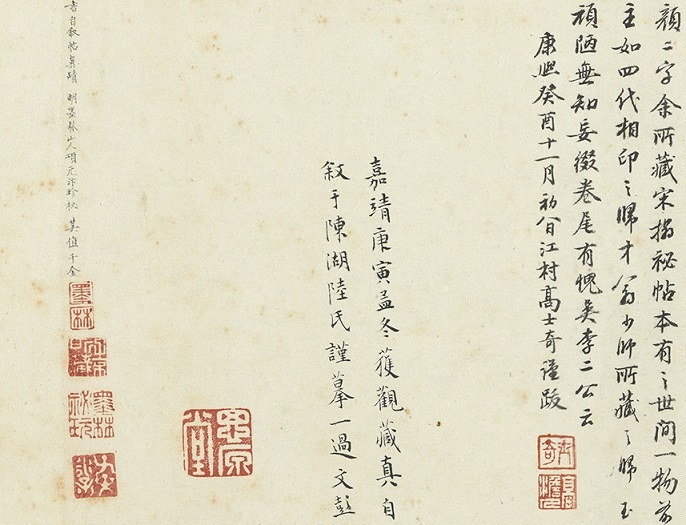 顏二字余所藏宋搨祕帖本有之世間一物前
主如四代相印之歸才翁少師所藏之歸玉
頑陋無知妄綴卷尾有愧吳李二公云
康熙癸酉十一月初八日江村高士奇謹跋
嘉靖庚寅孟冬獲觀藏真自
敘于陳湖陸氏謹摹一過文彭
自敘帖真蹟 明墨林山人項元汴珍秘 其值千金
墨林
項墨林